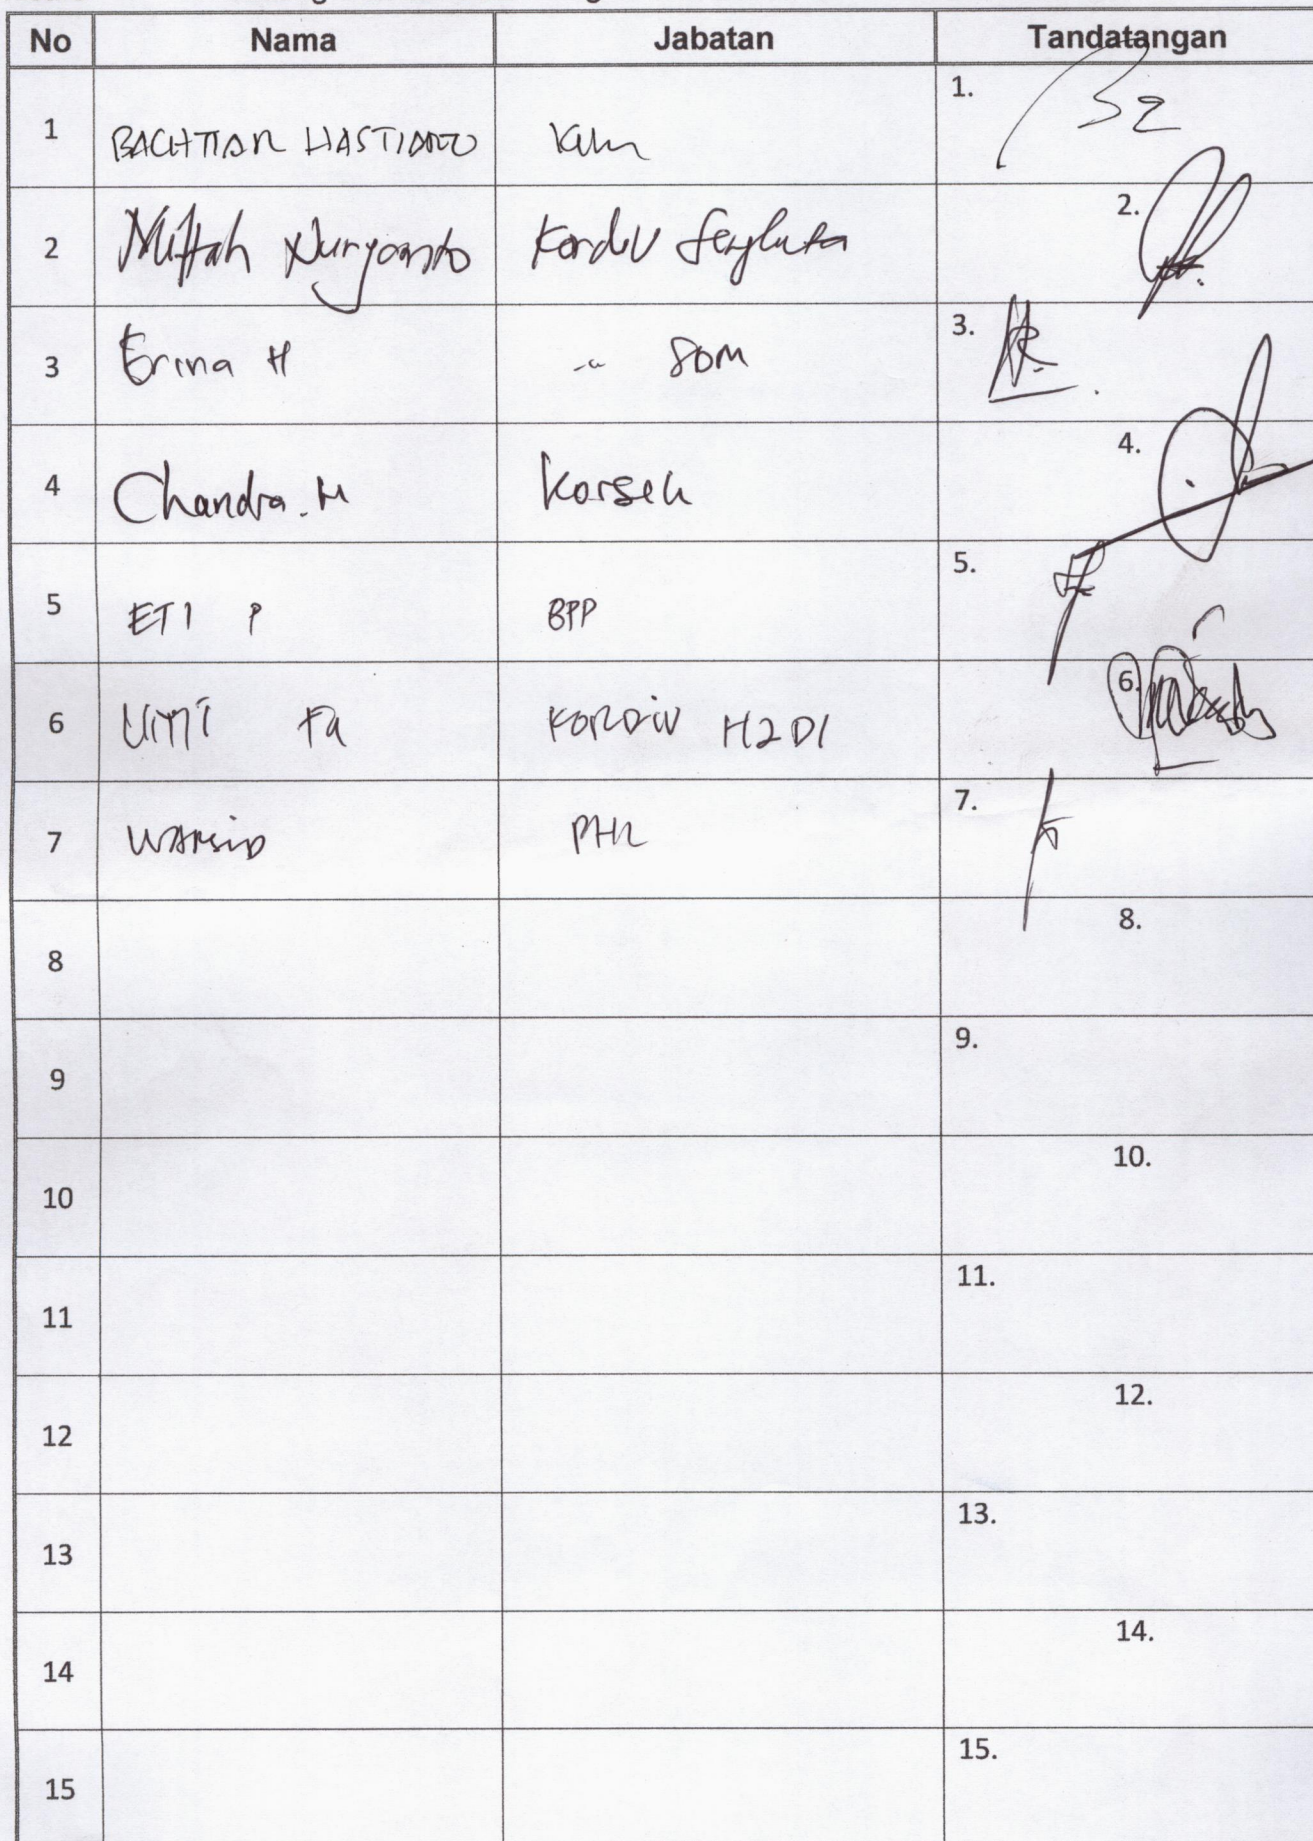 No Nama Jabatan Tandatangan
1 BACHTIAR HASTIARTO 1.
2 Miftah Nuryanto Kordiv 2.
3 Erina H -"- SDM 3.
4 Chandra. M Korsek 4.
5 ETI P BPP 5.
6 UMI Fa KORDIV H2DI 6.
7 WARSID 7.
8 8.
9 9.
10 10.
11 11.
12 12.
13 13.
14 14.
15 15.